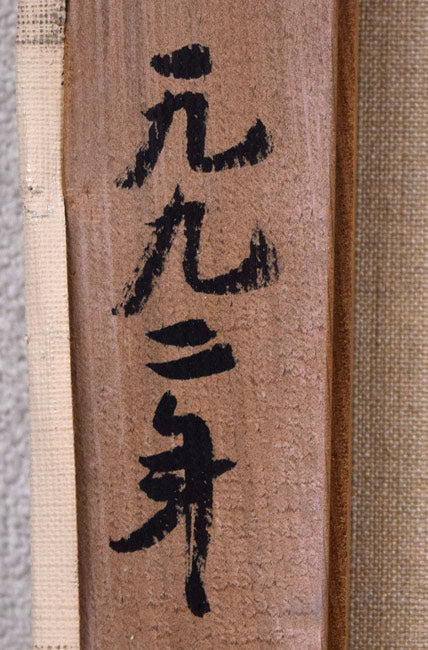 一九九二年